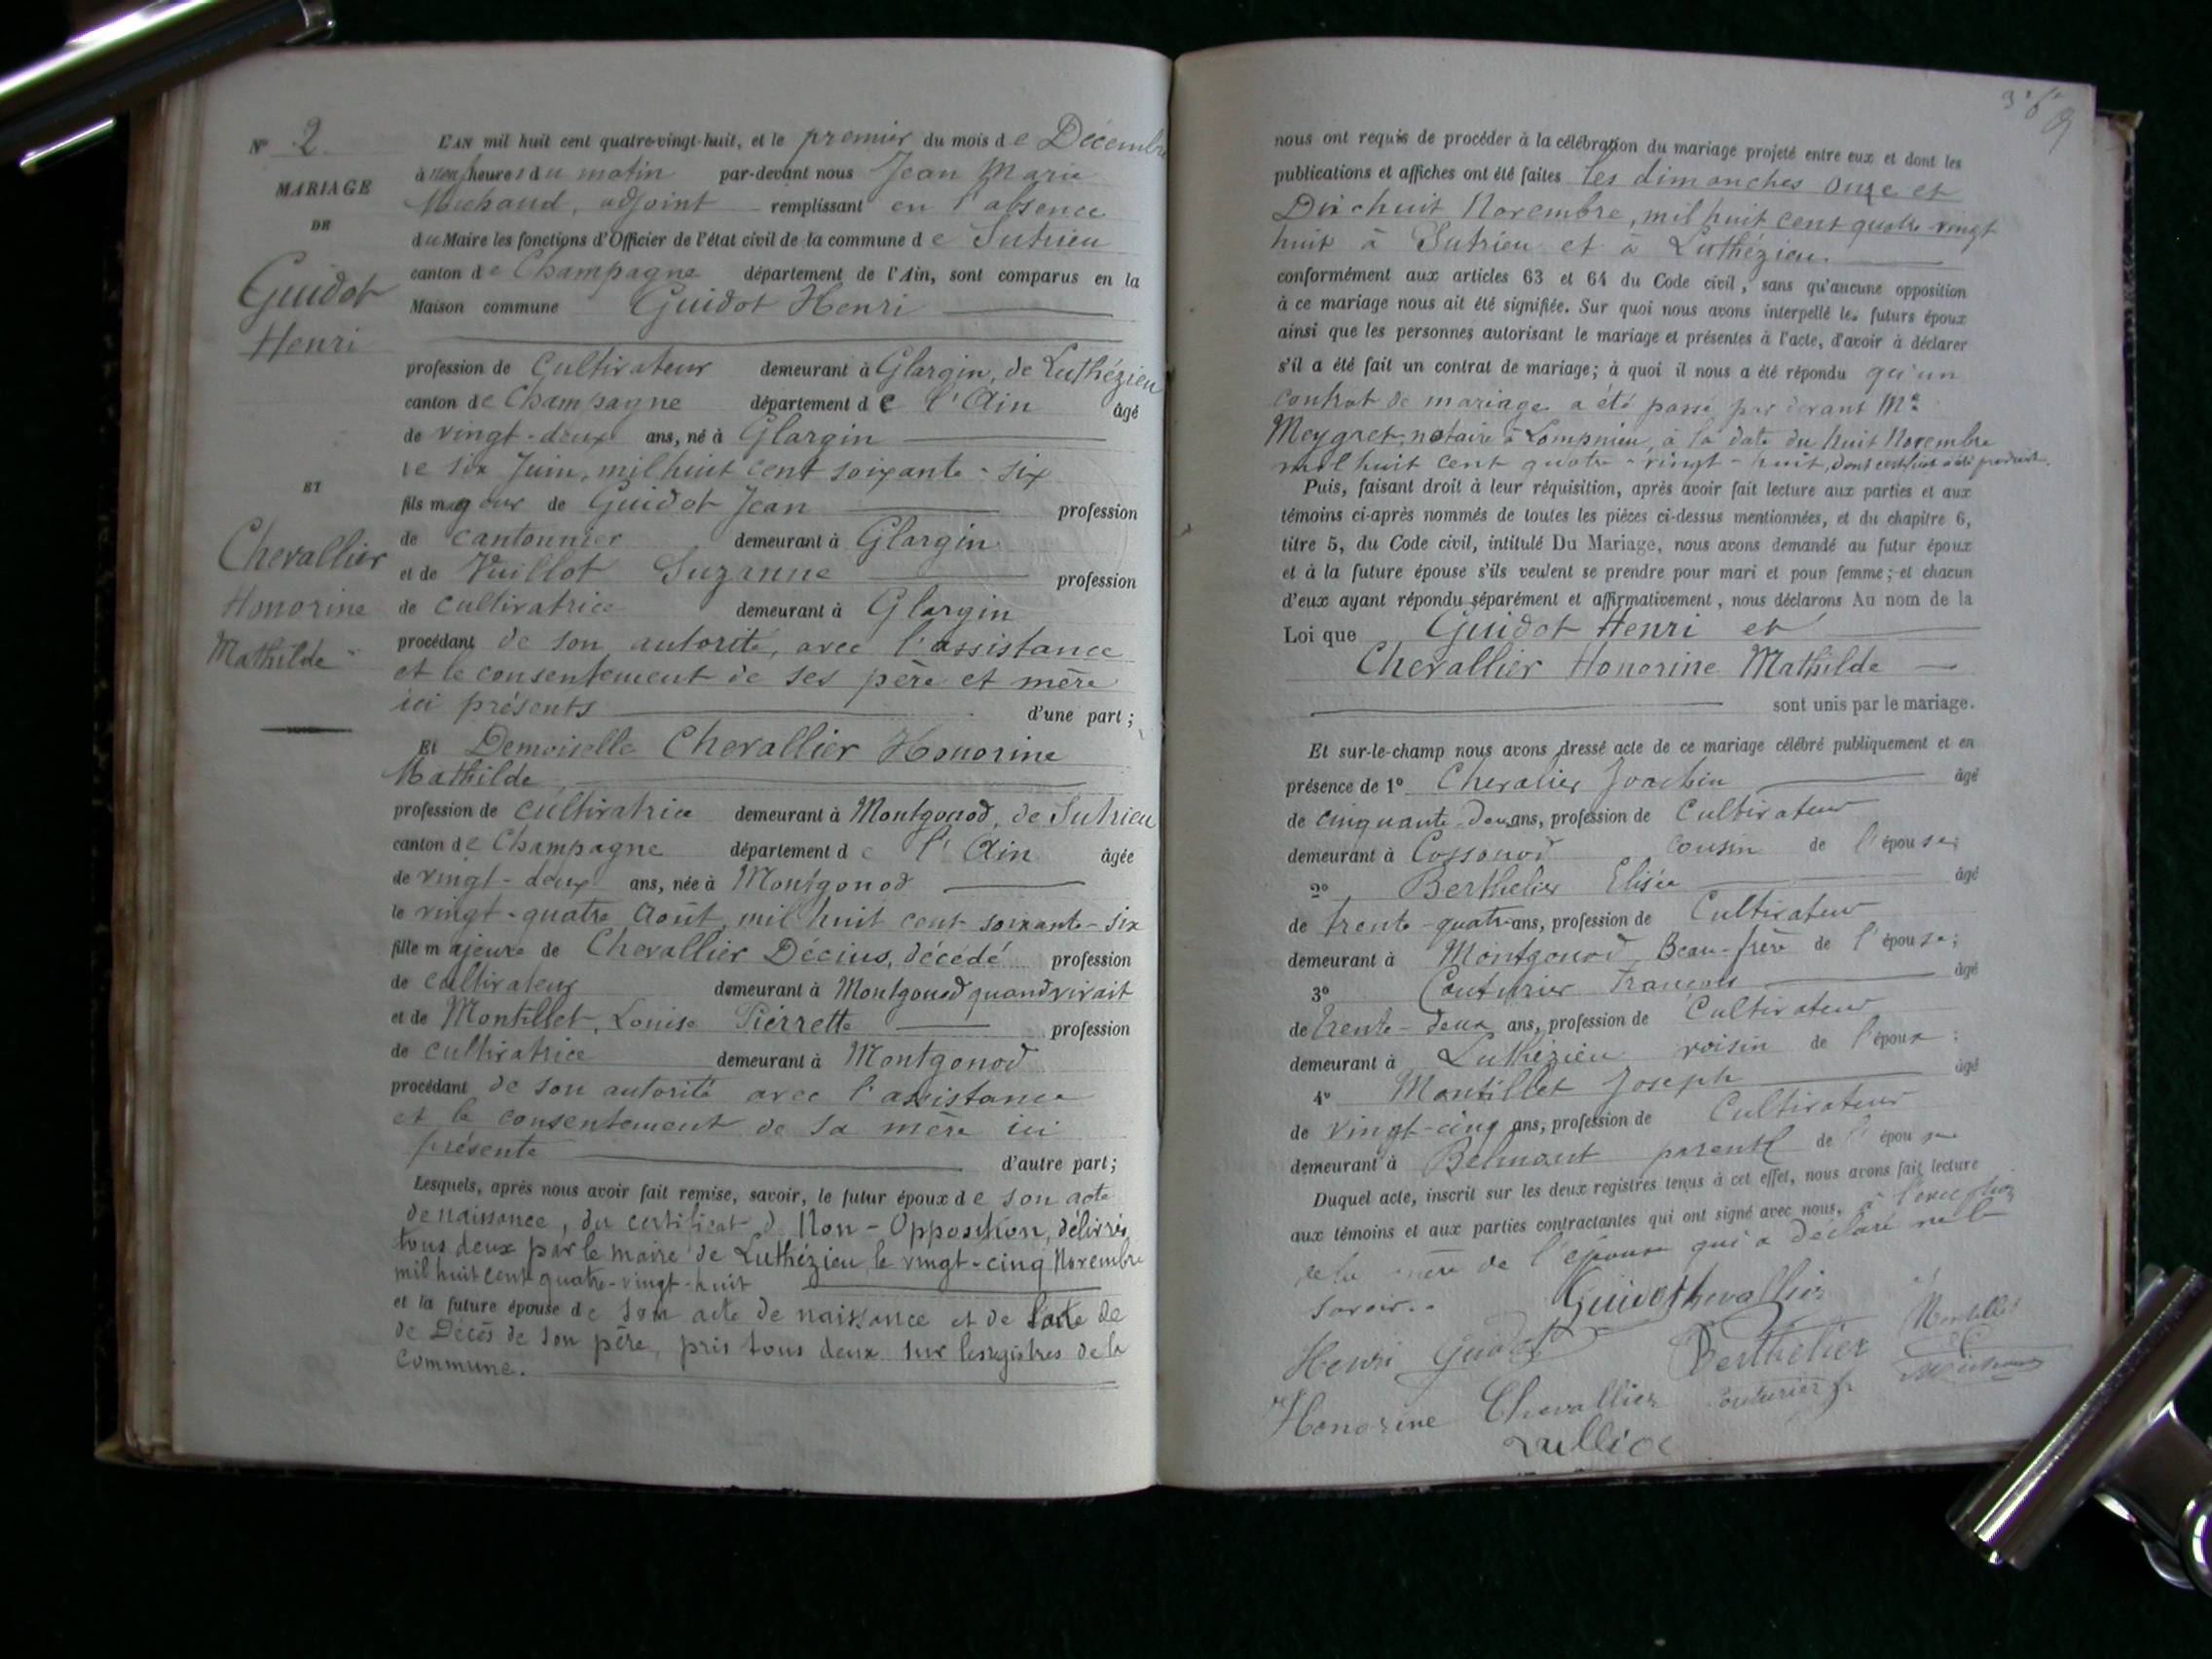 N° 2.
MARIAGE
DE
Guidot
Henri
ET
Chevallier
Honorine
Mathilde
L'AN mil huit cent quatre-vingt-huit, et le premier du mois de Décembre
à neuf heures du matin par-devant nous Jean Marie
Michaud, adjoint remplissant en l'absence
du Maire les fonctions d'Officier de l'état civil de la commune de Sutrieu
canton de Champagne département de l'Ain, sont comparus en la
Maison commune Guidot Henri
profession de Cultivateur demeurant à Glargin, de Luthézieu
canton de Champagne département de l'Ain âgé
de vingt-deux ans, né à Glargin
le six Juin, mil huit cent soixante-six
fils majeur de Guidot Jean profession
de cantonnier demeurant à Glargin
et de Vuillot Suzanne profession
de cultivatrice demeurant à Glargin
procédant de son autorité, avec l'assistance
et le consentement de ses père et mère
ici présents d'une part;
Et Demoiselle Chevallier Honorine
Mathilde
profession de cultivatrice demeurant à Montgonod, de Sutrieu
canton de Champagne département de l'Ain âgée
de vingt-deux ans, née à Montgonod
le vingt-quatre Août, mil huit cent soixante-six
fille majeure de Chevallier Décius, décédé profession
de cultivateur demeurant à Montgonod quand vivait
et de Montillet, Louise Pierrette profession
de cultivatrice demeurant à Montgonod
procédant de son autorité avec l'assistance
et le consentement de sa mère ici
présente d'autre part;
Lesquels, après nous avoir fait remise, savoir, le futur époux de son acte
de naissance, du certificat de Non-Opposition, délivrés
tous deux par le maire de Luthézieu, le vingt-cinq Novembre
mil huit cent quatre-vingt-huit
et la future épouse de son acte de naissance et de l'acte de
de Décès de son père, pris tous deux sur les registres de la
commune.
nous ont requis de procéder à la célébration du mariage projeté entre eux et dont les
publications et affiches ont été faites les dimanches onze et
Dix huit Novembre, mil huit cent quatre-vingt
huit à Sutrieu et à Luthézieu.
conformément aux articles 63 et 64 du Code civil, sans qu'aucune opposition
à ce mariage nous ait été signifiée. Sur quoi nous avons interpellé les futurs époux
ainsi que les personnes autorisant le mariage et présentes à l'acte, d'avoir à déclarer
s'il a été fait un contrat de mariage; à quoi il nous a été répondu qu'un
contrat de mariage a été passé par devant Me
Meygret, notaire à Lompnieu, à la date du huit Novembre
mil huit cent quatre-vingt-huit, dont certificat a été produit.
Puis, faisant droit à leur réquisition, après avoir fait lecture aux parties et aux
témoins ci-après nommés de toutes les pièces ci-dessus mentionnées, et du chapitre 6,
titre 5, du Code civil, intitulé Du Mariage, nous avons demandé au futur époux
et à la future épouse s'ils veulent se prendre pour mari et pour femme; et chacun
d'eux ayant répondu séparément et affirmativement, nous déclarons Au nom de la
Loi que Guidot Henri et
Chevallier Honorine Mathilde
sont unis par le mariage.
Et sur-le-champ nous avons dressé acte de ce mariage célébré publiquement et en
présence de 1° Chevalier Joachin âgé
de cinquante-deux ans, profession de Cultivateur
demeurant à Cossonod cousin de l'épouse;
2° Berthelier Elisée âgé
de trente-quatre ans, profession de Cultivateur
demeurant à Montgonod Beau-frère de l'épouse;
3° Couturier François âgé
de trente-deux ans, profession de Cultivateur
demeurant à Luthézieu voisin de l'époux;
4° Montillet Joseph âgé
de vingt-cinq ans, profession de Cultivateur
demeurant à Belmont parent de l'épouse
Duquel acte, inscrit sur les deux registres tenus à cet effet, nous avons fait lecture
aux témoins et aux parties contractantes qui ont signé avec nous, à l'exception
de la mère de l'épouse qui a déclaré ne le
savoir.
Guidot Chevallier
Henri Guidot Berthelier Montillet
Honorine Chevallier Couturier fr